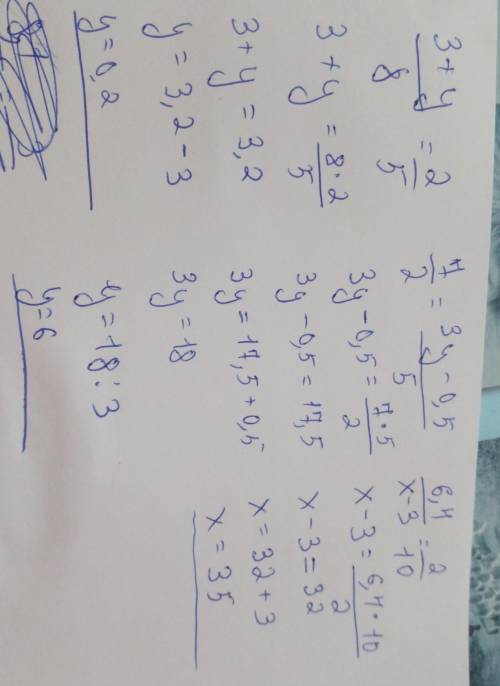 (3+y)/8 = 2/5
3+y = (8·2)/5
3+y = 3,2
y = 3,2-3
y=0,2
7/2 = (3y-0,5)/5
3y-0,5 = (7·5)/2
3y-0,5=17,5
3y=17,5+0,5
3y=18
y=18:3
y=6
6,4/(x-3) = 2/10
x-3 = (6,4·10)/2
x-3=32
x=32+3
x=35